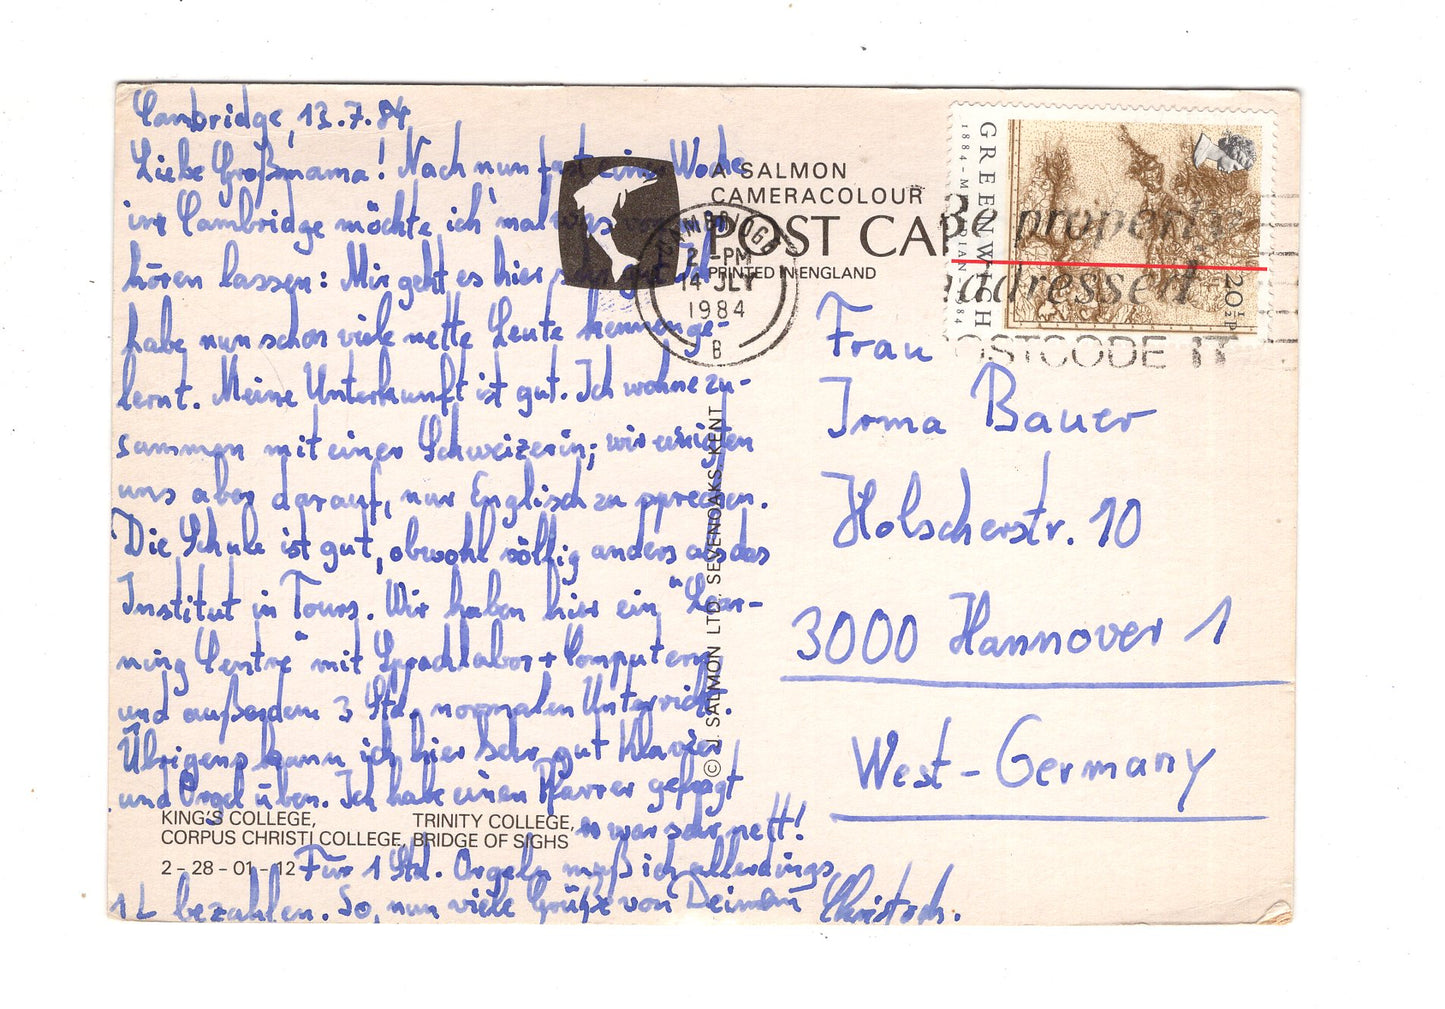 Cambridge, 13.7.84
Liebe Großmama! Nach nun fast einer Woche
in Cambridge möchte ich 'mal was von mir
hören lassen: Mir geht es hier sehr gut. Ich
habe nun schon viele nette Leute kennenge-
lernt. Meine Unterkunft ist gut. Ich wohne zu-
sammen mit einer Schweizerin; wir einigten
uns aber darauf, nur Englisch zu sprechen.
Die Schule ist gut, obwohl völlig anders als das
Institut in Tours. Wir haben hier ein "Lear-
ning Centre" mit Sprachlabor + Computern
und außerdem 3 Std. normalen Unterricht.
Übrigens kann ich hier sehr gut Klavier
und Orgel üben. Ich habe einen Pfarrer gefragt
er war sehr nett!
Für 1 Std. Orgeln muß ich allerdings
1 L bezahlen. So, nun viele Grüße von Deinem
KING'S COLLEGE, TRINITY COLLEGE,
CORPUS CHRISTI COLLEGE, BRIDGE OF SIGHS
2-28-01-12
A SALMON
CAMERACOLOUR
POST CAR
PRINTED IN ENGLAND
© J. SALMON LTD. SEVENOAKS. KENT
CAMBRIDGE
2 -PM
14 JLY
1984
B
Be properly
addressed
POSTCODE IT
GREENWICH
1884-MERIDIAN-1984
20½p
Frau
Irma Bauer
Holscherstr. 10
3000 Hannover 1
West-Germany